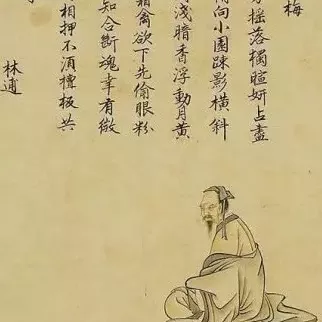 梅
搖落獨暄妍占盡
情向小園疎影橫斜
淺暗香浮動月黃
霜禽欲下先偷眼粉
知合斷魂幸有微
相押不湏檀板共
林逋